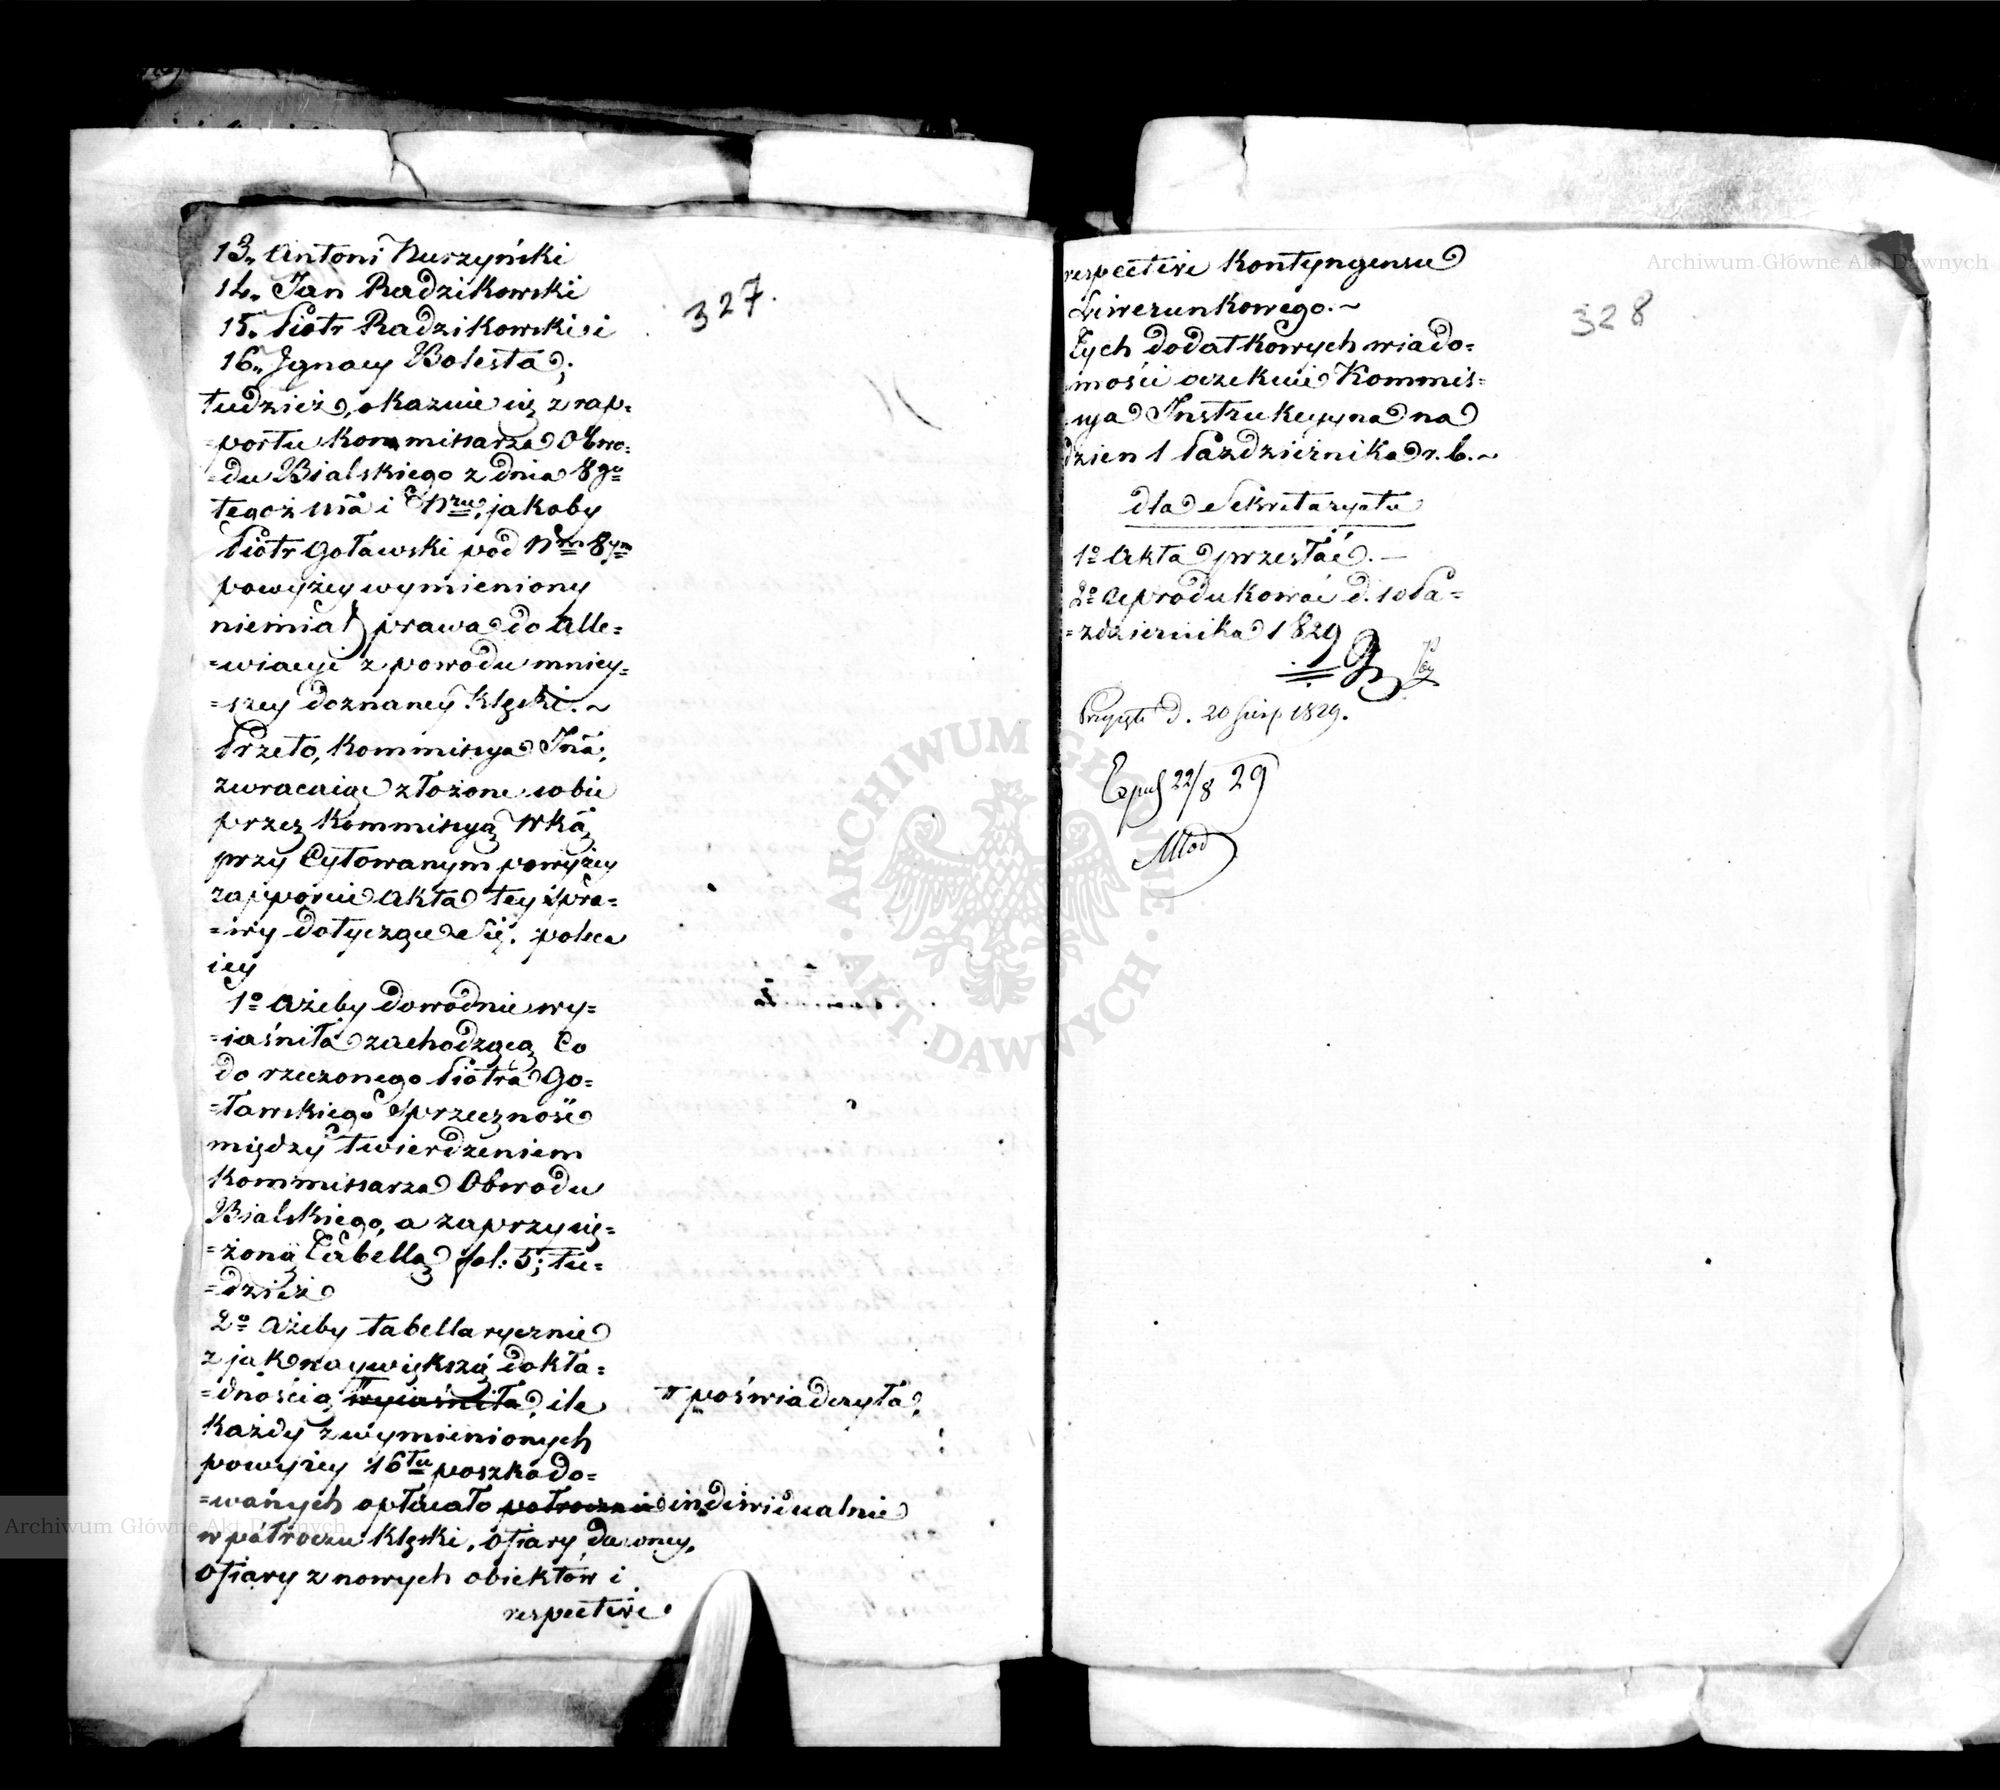 327.
13„ Antoni Kurzyński
14„ Jan Radzikowski
15„ Piotr Radzikowski i
16„ Ignacy Bolesta;
tudzież, okazuie się z rap=
=portu Kommissarza Obwo=
=du Bialskiego z dnia 8go
tegoż mca i Nru, jakoby
Piotr Goławski pod Nrm 8ym
powyżey wymieniony
niemiał prawa do alle=
=wiacyi z powodu mniey=
=szey doznaney klęski.~
Przeto, Kommissya Ina,
zwracaiąc złożone sobie
przez Kommissyą Wką
przy Cytowanym powyżey
rapporcie Akta tey Spra=
=wy dotyczące Się, poleca
iey
1o ażeby dowodnie wy=
=iaśniła zachodzącą Co
do rzeczonego Piotra Go=
=ławskiego Sprzeczność
między twierdzeniem
Kommissarza Obwodu
Bialskiego, a zaprzysię=
=żoną Tabellą fol: 5; tu=
=dzież
2o Ażeby tabellarycznie
z jak naywiększą dokła=
=dnością wyiaśniła, ile
π poświadczyła,
Każdy z wymienionych
powyżey 16tu poszkodo=
=wanych opłacało półrocznie indiwidualnie
w półroczu klęski, ofiary dawney,
Ofiary z nowych obiektów i
respective
Archiwum Główne Akt Dawnych
328
respective Kontyngensu
Liwerunkowego.~
Tych dodatkowych wiado=
=mości oczekuie Kommis=
=sya Instrukcyyna na
dzien 1 Października r. b.~
dla Sekretaryatu
1o Akta przesłać.—
2o Reprodukować d. 10 Pa=
=ździernika 1829
Przyięto d. 20 Sierp 1829.
Exped 22/8 29
Młod
ARCHIWUM GŁÓWNE · AKT DAWNYCH ·
Archiwum Główne Akt Dawnych